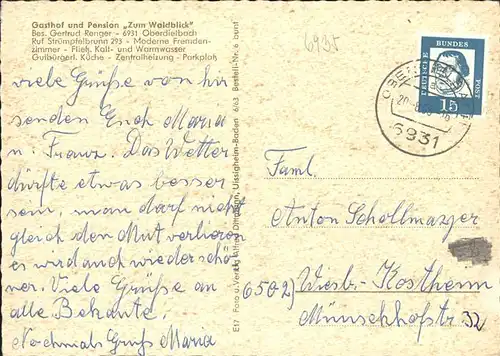 Gasthof und Pension „Zum Waldblick"
Bes. Gertrud Renger - 6931 Oberdielbach
Ruf Strümpfelbrunn 293 - Moderne Fremden-
zimmer - Fließ. Kalt- und Warmwasser
Gutbürgerl. Küche - Zentralheizung - Parkplatz
viele Grüsse von hir
senden Euch Maria
u. Franz. Das Wetter
dürfte etwas besser
sein, man darf nicht
gleich den Mut verlieren
es wird auch wieder schö=
ner. Viele Grüsse an
alle Bekante.
Nochmals Gruß Maria
E17 Foto u. Verlag Alfred Dingeldein, Uissigheim-Baden 6/63 Bestell-Nr. 6 bunt
6935
DEUTSCHE BUNDES POST
15
6931
Faml.
Anton Schollmayer
6502) Wiesb.-Kostheim
Münschhofstr 32